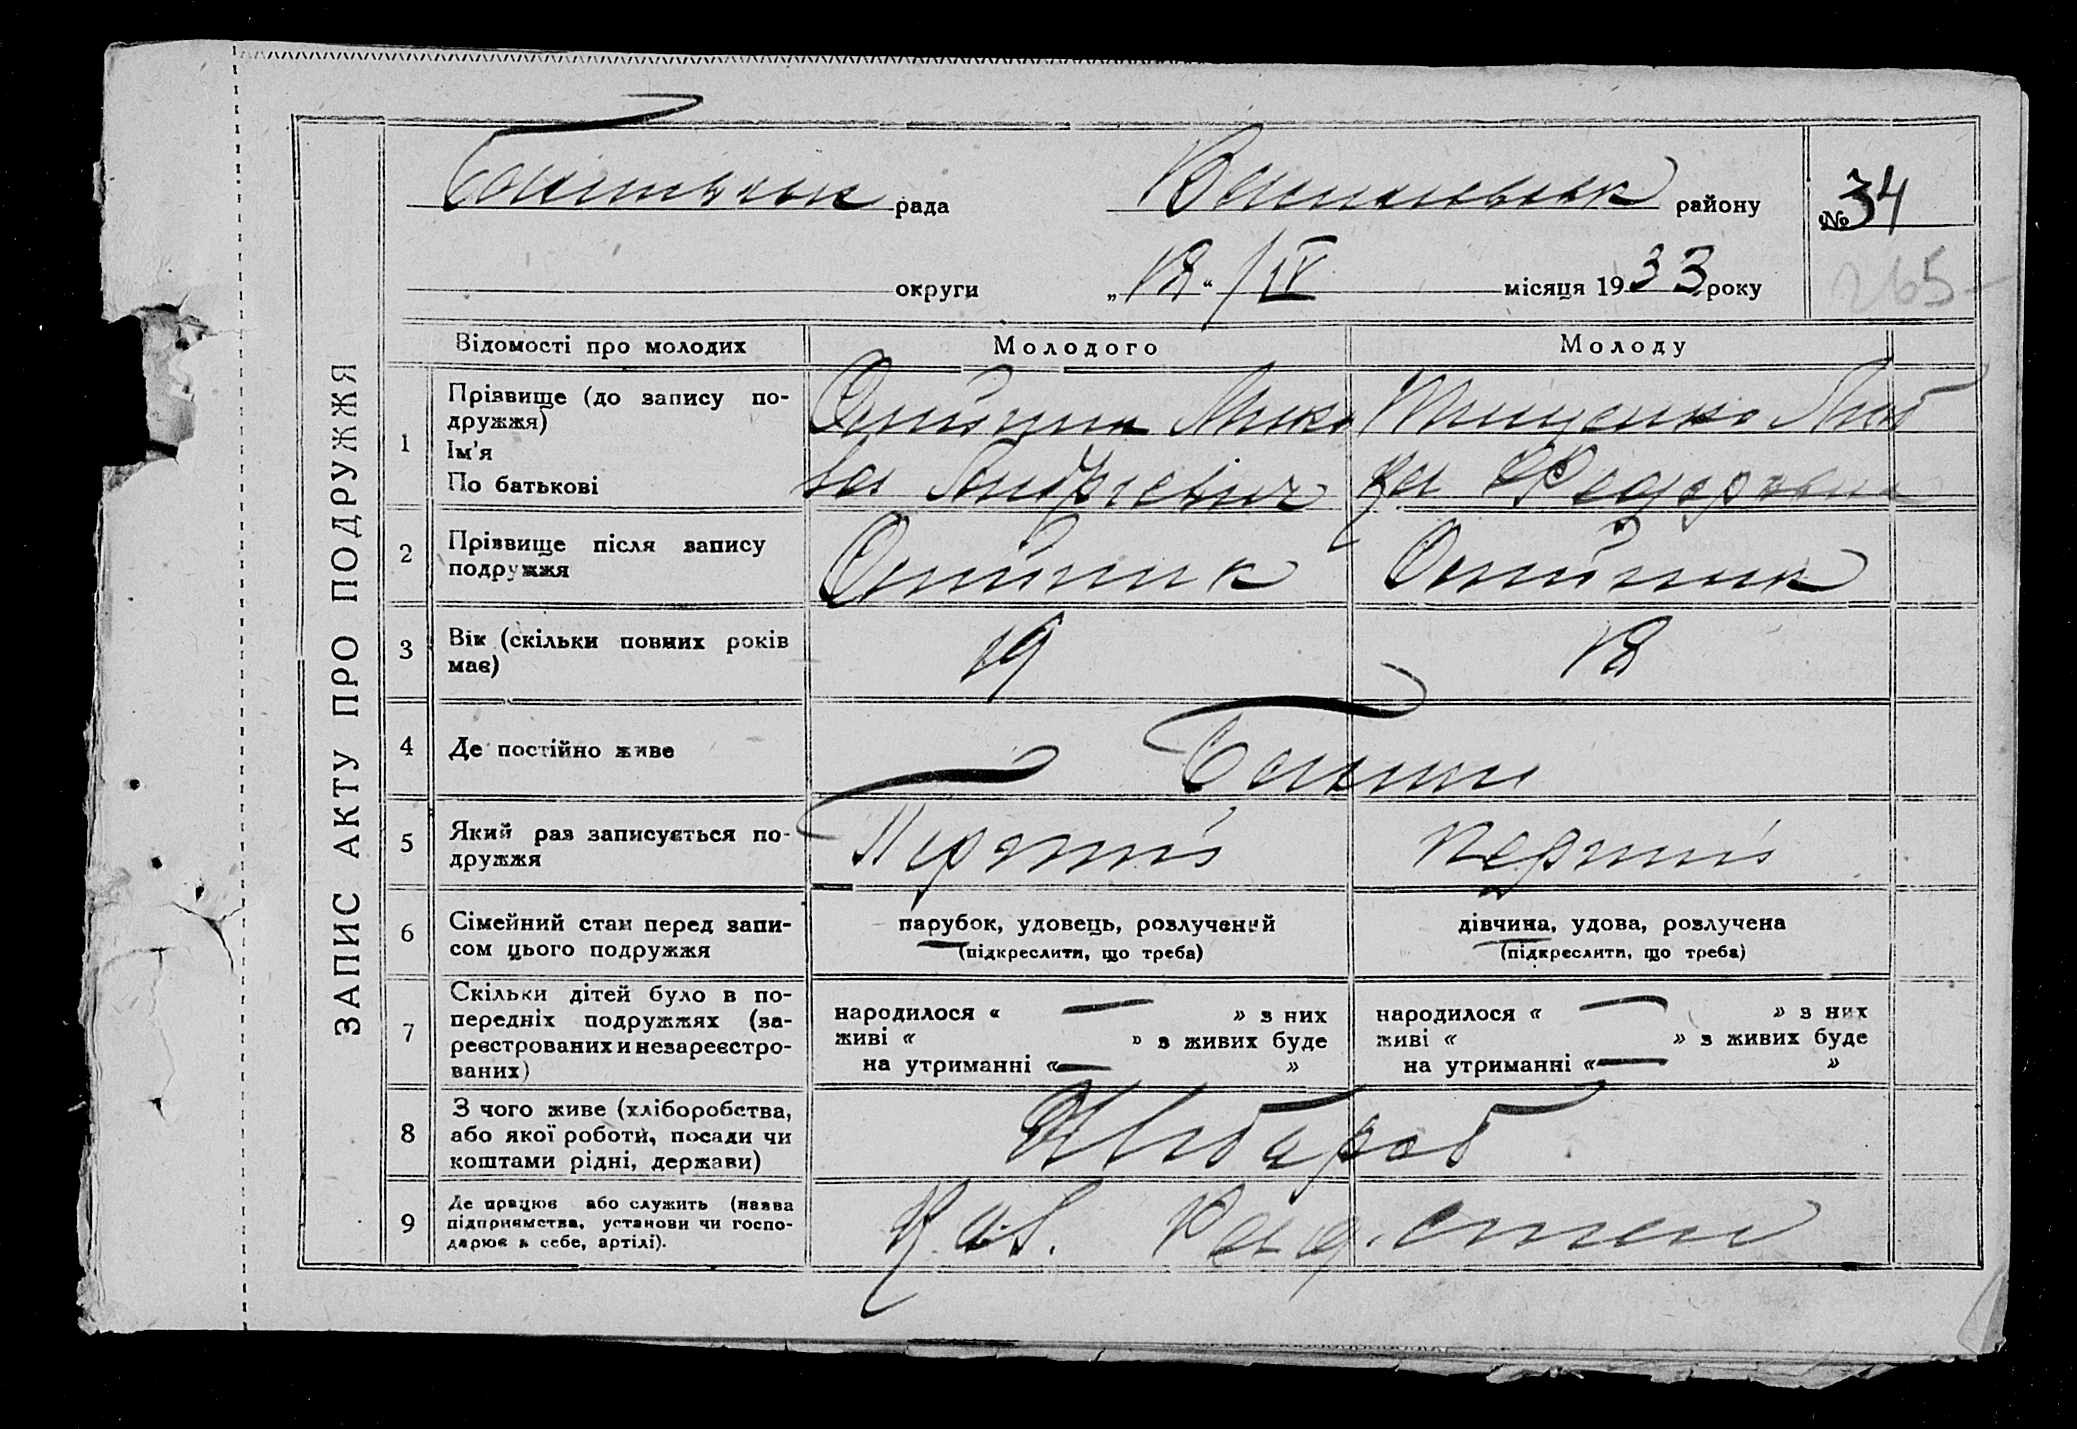 ЗАПИС АКТУ ПРО ПОДРУЖЖЯ
рада
району
№ 34
округи
„18“ /IV місяця 1933 року
265
Відомості про молодих
Молодого
Молоду
1
Прізвище (до запису по-
дружжя)
Ім'я
По батькові
Олійник Мико
ла Андрієвич
Тищенко
Федоровна
2
Прізвище після запису
подружжя
Олійник
Олійник
3
Вік (скільки повних років
має)
19
18
4
Де постійно живе
5
Який раз записується по-
дружжя
Перший
перший
6
Сімейний стан перед запи-
сом цього подружжя
парубок, удовець, розлучений
(підкреслити, що треба)
дівчина, удова, розлучена
(підкреслити, що треба)
7
Скільки дітей було в по-
передніх подружжях (за-
реєстрованих и незареєстро-
ваних)
народилося « — » з них
живі « » з живих буде
на утриманні « — »
народилося « — » з них
живі « » з живих буде
на утриманні « — »
8
З чого живе (хліборобства,
або якої роботи, посади чи
коштами рідні, держави)
Хлібороб
9
Де працює або служить (назва
підприємства, установи чи госпо-
дарює в себе, артілі).